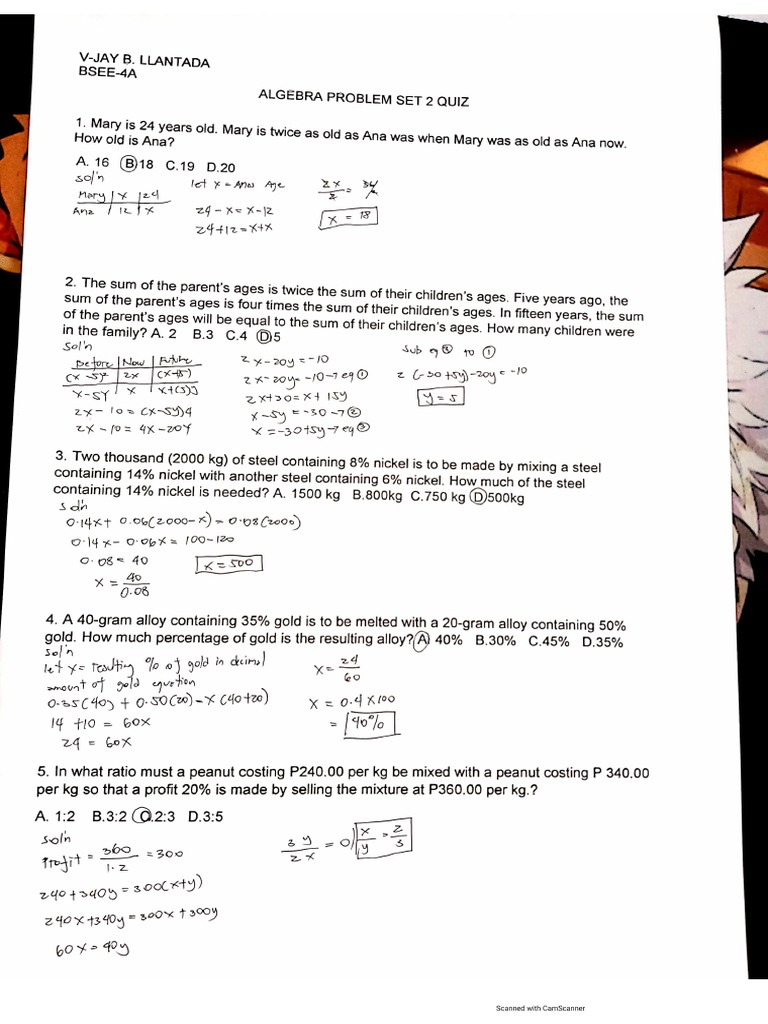 V-JAY B. LLANTADA
BSEE-4A
ALGEBRA PROBLEM SET 2 QUIZ
1. Mary is 24 years old. Mary is twice as old as Ana was when Mary was as old as Ana now.
How old is Ana?
A. 16 B.18 C.19 D.20
sol'n
Mary | x | 24
Ana | 12 | x
let x = Anas Age
24 - x = x - 12
24 + 12 = x + x
2x/2 = 36/2
x = 18
2. The sum of the parent's ages is twice the sum of their children's ages. Five years ago, the
sum of the parent's ages is four times the sum of their children's ages. In fifteen years, the sum
of the parent's ages will be equal to the sum of their children's ages. How many children were
in the family? A. 2 B.3 C.4 D.5
Sol'n
Before | Now | Future
2x
x - 5y | x
2x - 10 = (x - 5y)4
2x - 10 = 4x - 20y
2x - 20y = -10
2x - 20y = -10 → eq ①
2x + 30 = x + 15y
x - 5y = -30 → ②
x = -30 + 5y → eq ③
Sub eq ③ to ①
2 (-30 + 5y) - 20y = -10
y = 5
3. Two thousand (2000 kg) of steel containing 8% nickel is to be made by mixing a steel
containing 14% nickel with another steel containing 6% nickel. How much of the steel
containing 14% nickel is needed? A. 1500 kg B.800kg C.750 kg D.500kg
sol'n
0.14x + 0.06(2000 - x) = 0.08(2000)
0.14x - 0.06x = 100 - 120
0.08 = 40
x = 40/0.08
x = 500
4. A 40-gram alloy containing 35% gold is to be melted with a 20-gram alloy containing 50%
gold. How much percentage of gold is the resulting alloy? A. 40% B.30% C.45% D.35%
sol'n
let x = resulting % of gold in decimal
amount of gold equation
0.35(40) + 0.50(20) - x (40+20)
14 + 10 = 60x
24 = 60x
x = 24/60
x = 0.4 x 100
= 40%
5. In what ratio must a peanut costing P240.00 per kg be mixed with a peanut costing P 340.00
per kg so that a profit 20% is made by selling the mixture at P360.00 per kg.?
A. 1:2 B.3:2 C.2:3 D.3:5
Sol'n
Profit = 360/1.2 = 300
240 + 340y = 300(x+y)
240x + 340y = 300x + 300y
60x = 40y
3y/2x = 0
x/y = 2/3
Scanned with CamScanner